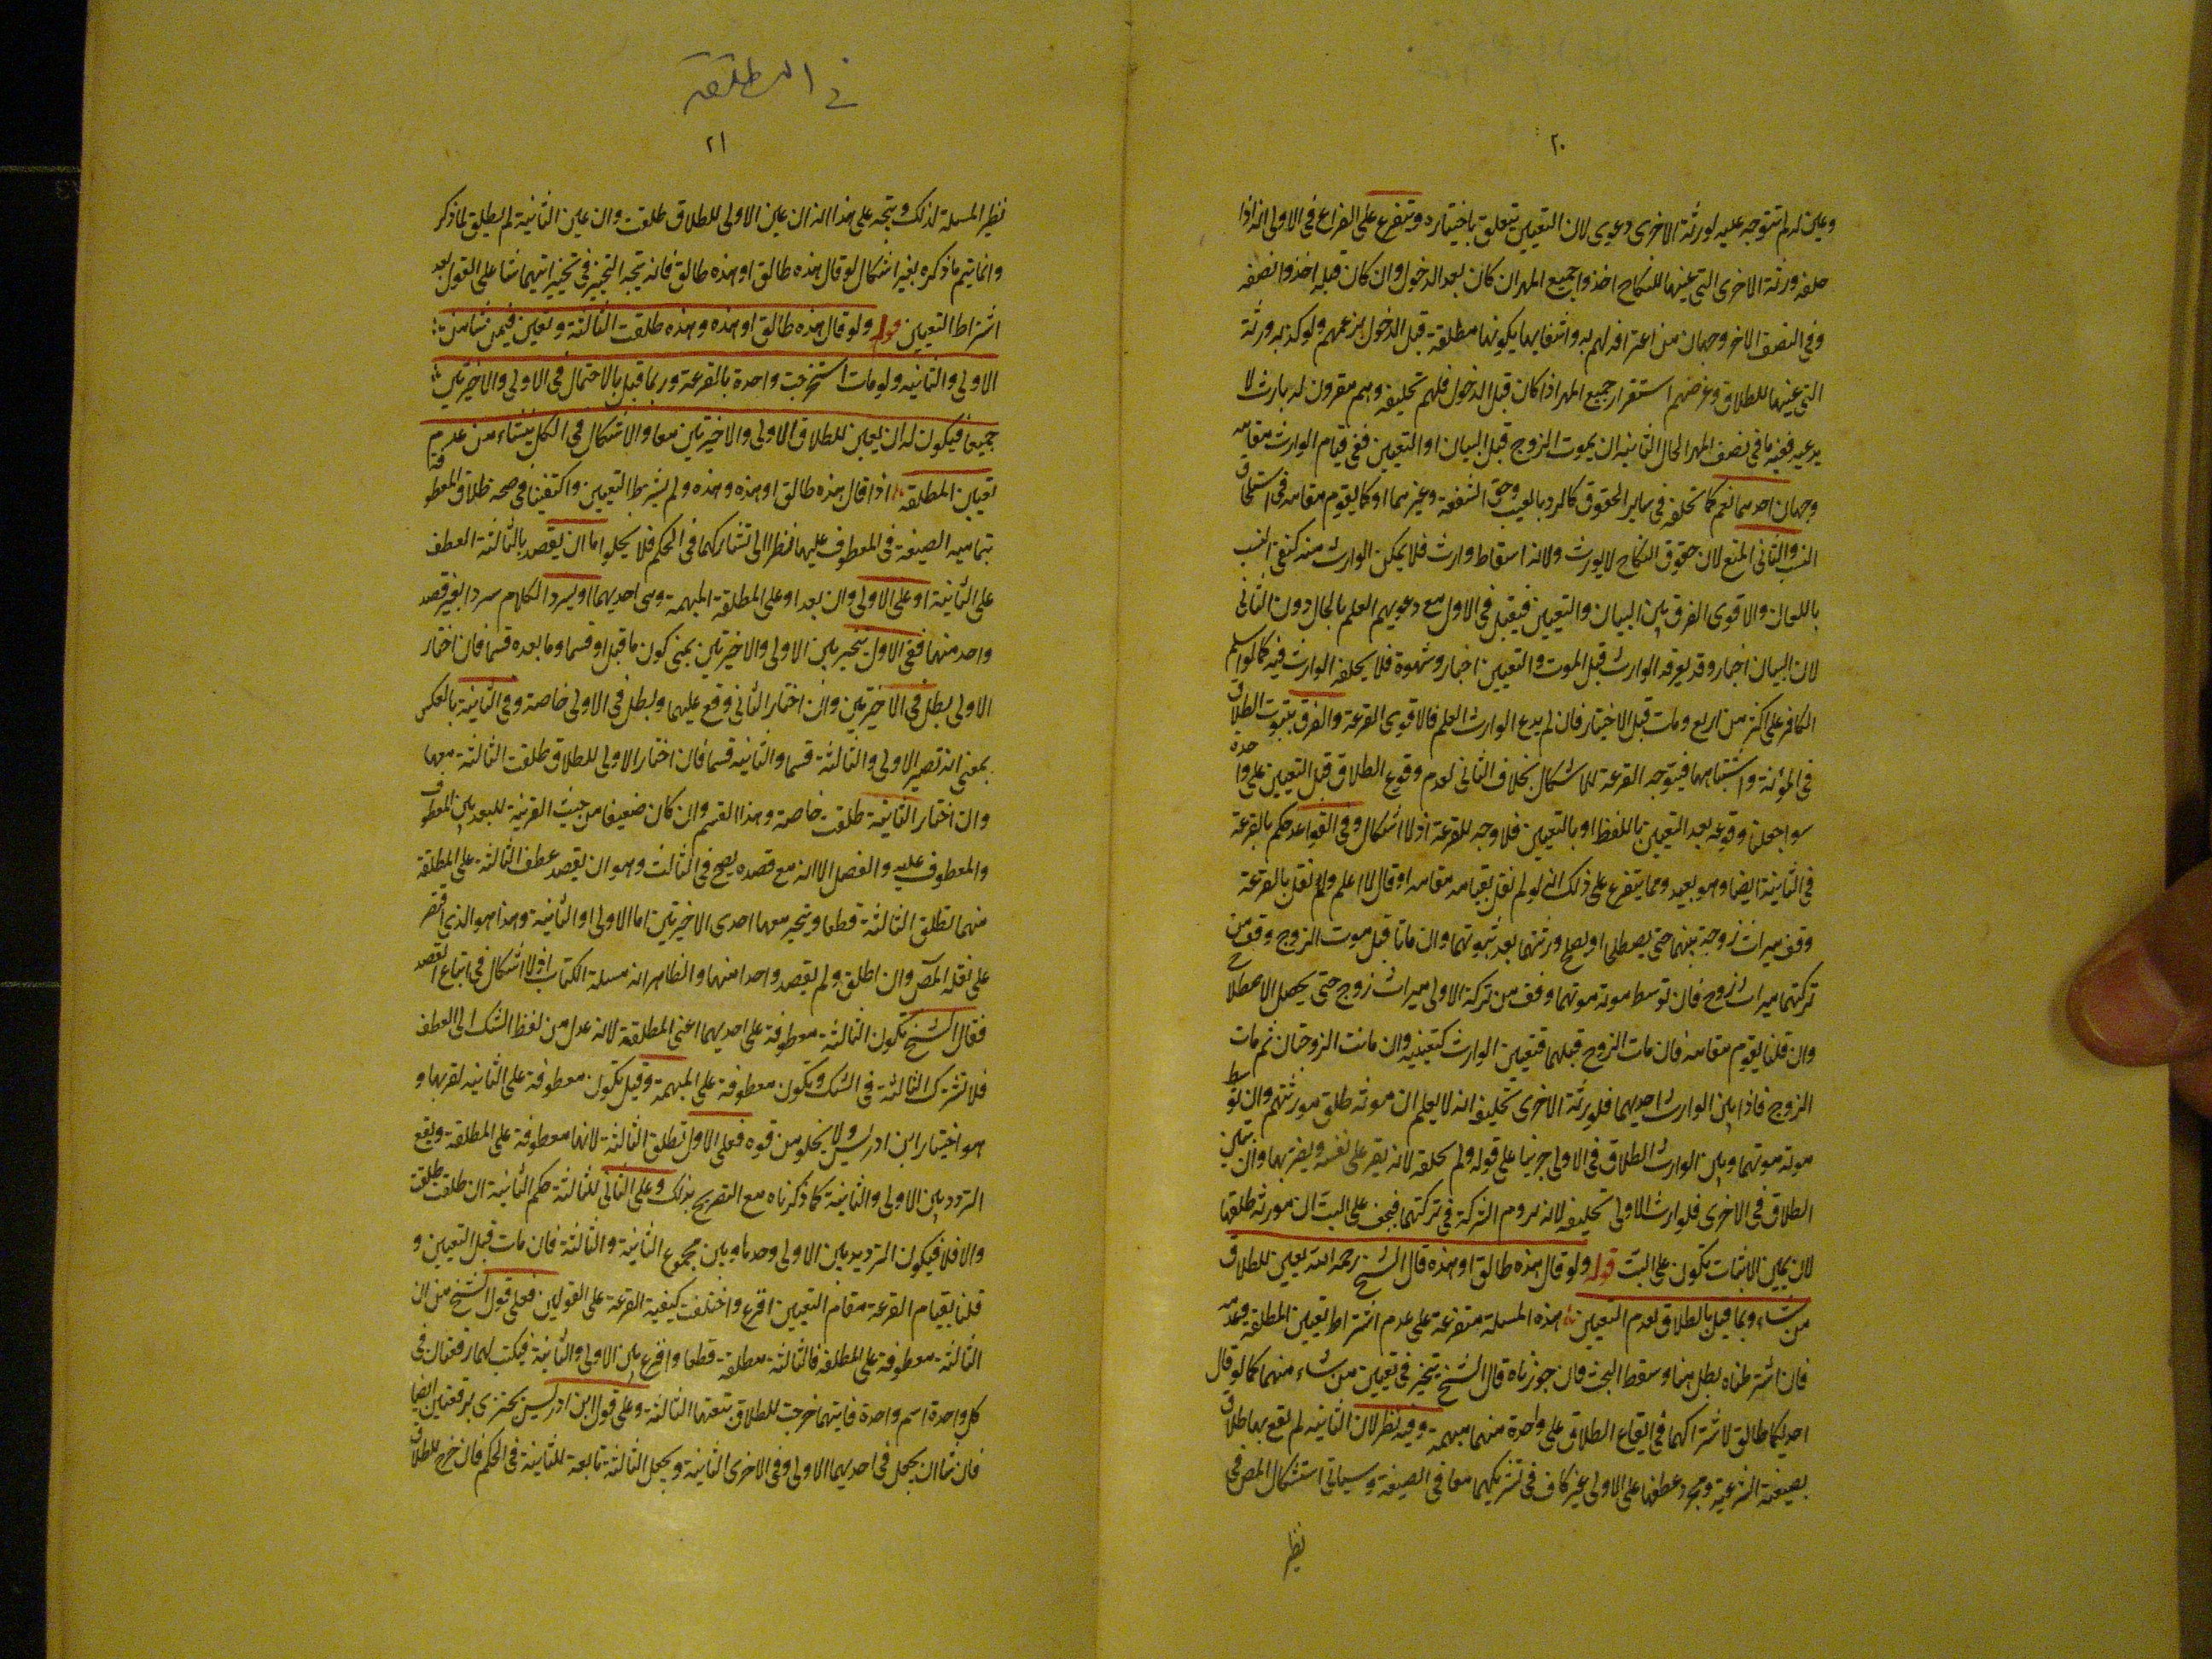 ٢٠
وعين له لم تتوجه عليه لورثة الاخرى دعوى لان التعيين يتعلق باختياره ويتفرع على النزاع في الاولى انه اذا
حلفه ورثة الاخرى التي عينها للنكاح اخذوا جميع المهر ان كان بعد الدخول وان كان قبله اخذوا نصفه
وفي النصف الاخر وجهان من اعترافه لهم به وانتفائها بكونها مطلقة قبل الدخول بزعمهم ولو كذبه ورثة
التي عينها للطلاق وغرضهم استقرار جميع المهر اذا كان قبل الدخول فلهم تحليفه وهم مقرون له بارث لا
يدعيه ففيه ما في نصف المهر الحال الثانية ان يموت الزوج قبل البيان او التعيين ففي قيام الوارث مقامه
وجهان احدهما نعم كما تخلفه في ساير الحقوق كالرد بالعيب وحق الشفعة وغيرهما او كما يقوم مقامه في استلحاق
النسب والثاني المنع لان حقوق النكاح لا يورث ولانه اسقاط وارث فلا يمكن الوارث منه كنفي النسب
باللعان والاقوى الفرق بين البيان والتعيين فيقبل في الاول مع دعويهم العلم بالحال دون الثاني
لان البيان اخبار وقد يعرفه الوارث قبل الموت والتعيين اختيار وشهوة فلا يخلفه الوارث فيه كما لو اسلم
الكافر على اكثر من اربع ومات قبل الاختيار فان لم يدع الوارث العلم فالاقوى القرعة والفرق بثبوت الطلاق
في المؤثة واشتباهها فيتوجه القرعة للاشكال بخلاف الثاني لعدم وقوع الطلاق قبل التعيين على واحدة
سوا جعلنا وقوعه بعد التعيين باللفظ او بالتعيين فلا وجه للقرعة اذ لا اشكال وفي القواعد حكم بالقرعة
في الثانية ايضا وهو بعيد ومما يتفرع على ذلك انه لو لم نقل بقيامه مقامه او قال لا اعلم ولم نقل بالقرعة
وقف ميراث زوجة بينهما حتى يصطلحا او يصلح ورثتهما بعد موتهما وان ماتا قبل موت الزوج وقف من
تركتهما ميراث زوج فان توسط موته موتهما وقف من تركة الاولى ميراث زوج حتى يحصل الاصطلاح
وان قلنا يقوم مقامه فان مات الزوج قبلهما فتعيين الوارث كتعيينه وان ماتت الزوجتان ثم مات
الزوج فاذا بين الوارث احديهما فلورثة الاخرى تحليفه انه لا يعلم ان مورثه طلق مورثتهم وان توسط
موته موتهما وبين الوارث الطلاق في الاولى جرينا على قوله ولم نحلفه لانه يقر على نفسه ويضر بها وان بين
الطلاق في الاخرى فلوارث الاولى تحليفه لانه يروم الشركة في تركتهما فيحلف على البت ان مورثه طلقها
لان يمين الاثبات تكون على البت قوله ولو قال هذه طالق او هذه قال الشيخ رحمه الله يعين للطلاق
من شاء وربما قيل بالطلاق لعدم التعيين هذه المسلة متفرعة على عدم اشتراط تعيين المطلقة وعدمه
فان اشترطناه بطل هنا وسقط البحث فان جوزناه قال الشيخ يتخير في تعيين من شاء منهما كما لو قال
احديكما طالق لاشتراكهما في ايقاع الطلاق على واحدة منهما مبهمة وفيه نظر لان الثانية لم يقع بها طلاق
بصيغته الشرعية ومجرد عطفها على الاولى غير كاف في تشريكهما معا في الصيغة وسياتي استشكال المص في
نظير
في المطلقة
٢١
نظير المسلة لذلك ويتجه على هذا انه ان عين الاولى للطلاق طلقت وان عين الثانية لم يطلق لما ذكر
وانما يتم ما ذكره بغير اشكال لو قال هذه طالق او هذه طالق فانه يتجه التخيير في تخيير ايتهما شا على القول بعد
اشتراط التعيين قوله ولو قال هذه طالق او هذه وهذه طلقت الثالثة ويعين فيمن شا من
الاولى والثانية ولو مات استخرجت واحدة بالقرعة وربما قيل بالاحتمال في الاولى والاخرتين
جميعا فيكون له ان يعين للطلاق الاولى والاخيرتين معا والاشكال في الكل ينشاء من عدم
تعيين المطلقة اذا قال هذه طالق او هذه وهذه ولم نشترط التعيين واكتفينا في صحة طلاق المعطوفة
بتمامية الصيغة في المعطوف عليها نظرا الى تشاركهما في الحكم فلا يخلو اما ان يقصد بالثالثة العطف
على الثانية او على الاولى وان بعد او على المطلقة المبهمة وهي احديهما او يسرد الكلام سردا بغير قصد
واحد منهما ففي الاول يتخير بين الاولى والاخيرتين بمعنى كون ما قبل او قسما وما بعده قسما فان اختار
الاولى بطل في الاخيرتين وان اختار الثاني وقع عليهما وبطل في الاولى خاصة وفي الثانية بالعكس
بمعنى انه تصير الاولى والثالثة قسما والثانية قسما فان اختار الاولى للطلاق طلقت الثالثة معها
وان اختار الثانية طلقت خاصة وهذا القسم وان كان ضعيفا من حيث القرينة للبعد بين المعطوف
والمعطوف عليه والفصل الا انه مع قصده يصح في الثالث وهو ان يقصد عطف الثالثة على المطلقة
منهما تطلق الثالثة قطعا ويتخير معها احدى الاخيرتين اما الاولى او الثانية وهذا هو الذي اقتصر
على نقله المص وان اطلق ولم يقصد واحدا منهما والظاهر انه مسلة الكتاب اذ لا اشكال في اتباع القصد
فقال الشيخ تكون الثالثة معطوفة على احديهما اعني المطلقة لانه عدل من لفظ الشك الى العطف
فلا تشترك الثالثة في الشك ويكون معطوفة على المبهمة وقيل يكون معطوفة على الثانية لقربها و
هو اختيار ابن ادريس ولا يخلو من قوة فعلى الاول تطلق الثالثة لانها معطوفة على المطلقة ويقع
التردد بين الاولى والثانية كما ذكرناه مع التصريح بذلك وعلى الثاني للثالثة حكم الثانية ان طلقت طلقت
والا فلا فيكون الترديد بين الاولى وحدها وبين مجموع الثانية والثالثة فان مات قبل التعيين و
قلنا بقيام القرعة مقام التعيين اقرع واختلف كيفية القرعة على القولين فعلى قول الشيخ من ان
الثالثة معطوفة على المطلقة فالثالثة مطلقة قطعا واقرع بين الاولى والثانية فيكتب لهما رقعتان في
كل واحدة اسم واحدة فايتهما خرجت للطلاق تتعتها الثالثة وعلى قول ابن ادريس يجتزى برقعتين ايضا
فان شا ان يجعل في احديهما الاولى وفي الاخرى الثانية ويجعل الثالثة تابعة للثانية في الحكم فان خرج للطلاق